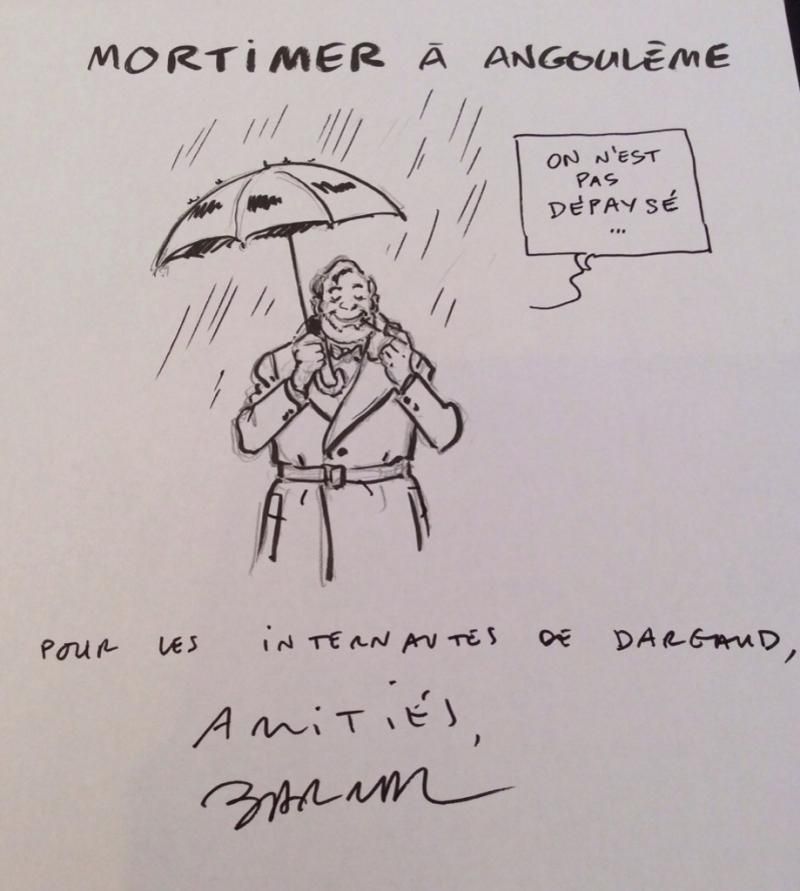 MORTIMER À ANGOULÊME
ON N'EST
PAS
DÉPAYSÉ
...
POUR LES INTERNAUTES DE DARGAUD,
AMITIÉS,